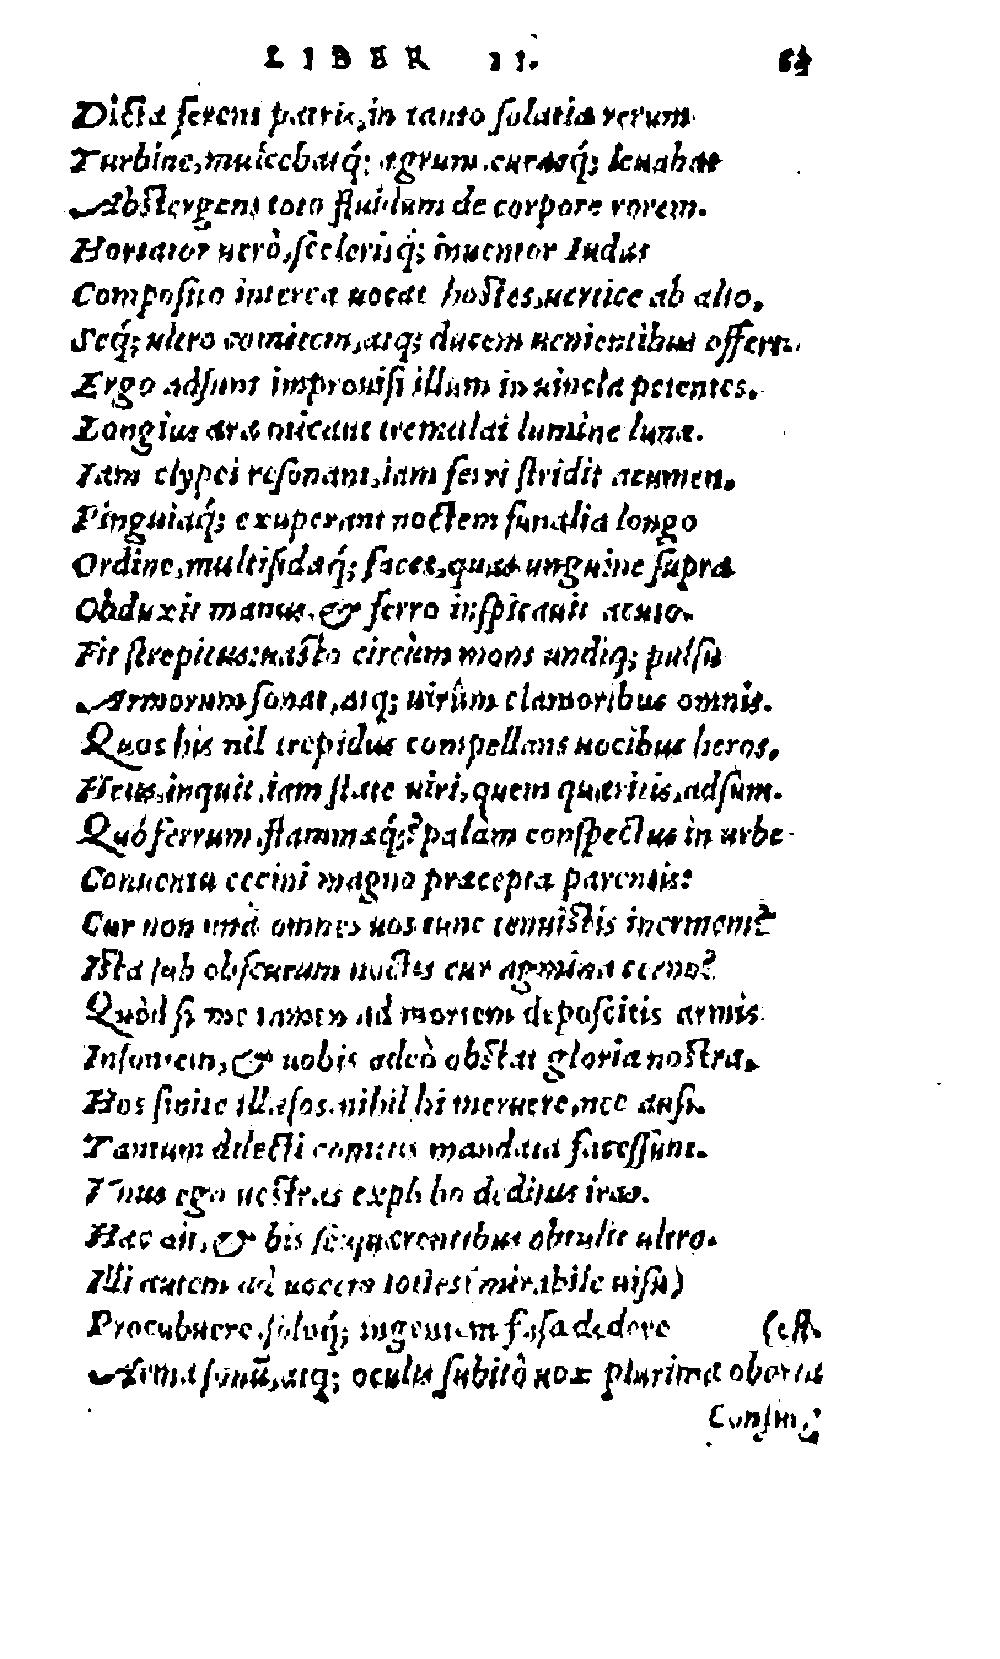 LIBER II.
Dicta ferens patris, in tanto solatia rerum
Turbine, mulcebatq́; ægrum, curasq́; leuabat
Abstergens toto fluidum de corpore rorem.
Hortator uerò, scelerisq́; inuentor Iudas
Composito interea uocat hostes, uertice ab alto,
Seq́; ultro comitem, atq; ducem uenientibus offert.
Ergo adsunt improuisi illum in uincla petentes.
Longius æra micant tremulai lumine lunæ.
Iam clypei resonant, iam ferri stridit acumen.
Pinguiaq́; exuperant noctem funalia longo
Ordine, multifidaq́; faces, quas unguine supra
Obduxit manus, & ferro inspicauit acuto.
Fit strepitus: uasto circùm mons undiq; pulsu
Armorum sonat, atq; uirûm clamoribus omnis.
Quos his nil trepidus compellans uocibus heros,
Heus, inquit, iam state uiri, quem quæritis, adsum.
Quò ferrum, flammæq́;? palàm conspectus in urbe
Conuentu cecini magno præcepta parentis:
Cur non unà omnes uos tunc tenuistis inermem?
Ista sub obscurum noctis cur agmina cerno?
Quòd si me tamen ad mortem deposcitis armis
Insontem, & uobis adeò obstat gloria nostra,
Hos sinite illæsos. nihil hi meruere, nec ausi.
Tantum dilecti comitis mandata facessunt.
Vnus ego uestras explebo deditus iras.
Hæc ait, & bis se quærentibus obtulit ultro.
Illi autem ad uocem toties (mirabile uisu)
Procubuere solo, q́; ingentem fusa dedere (est.
Arma sonũ, atq; oculis subitò nox plurima oborta